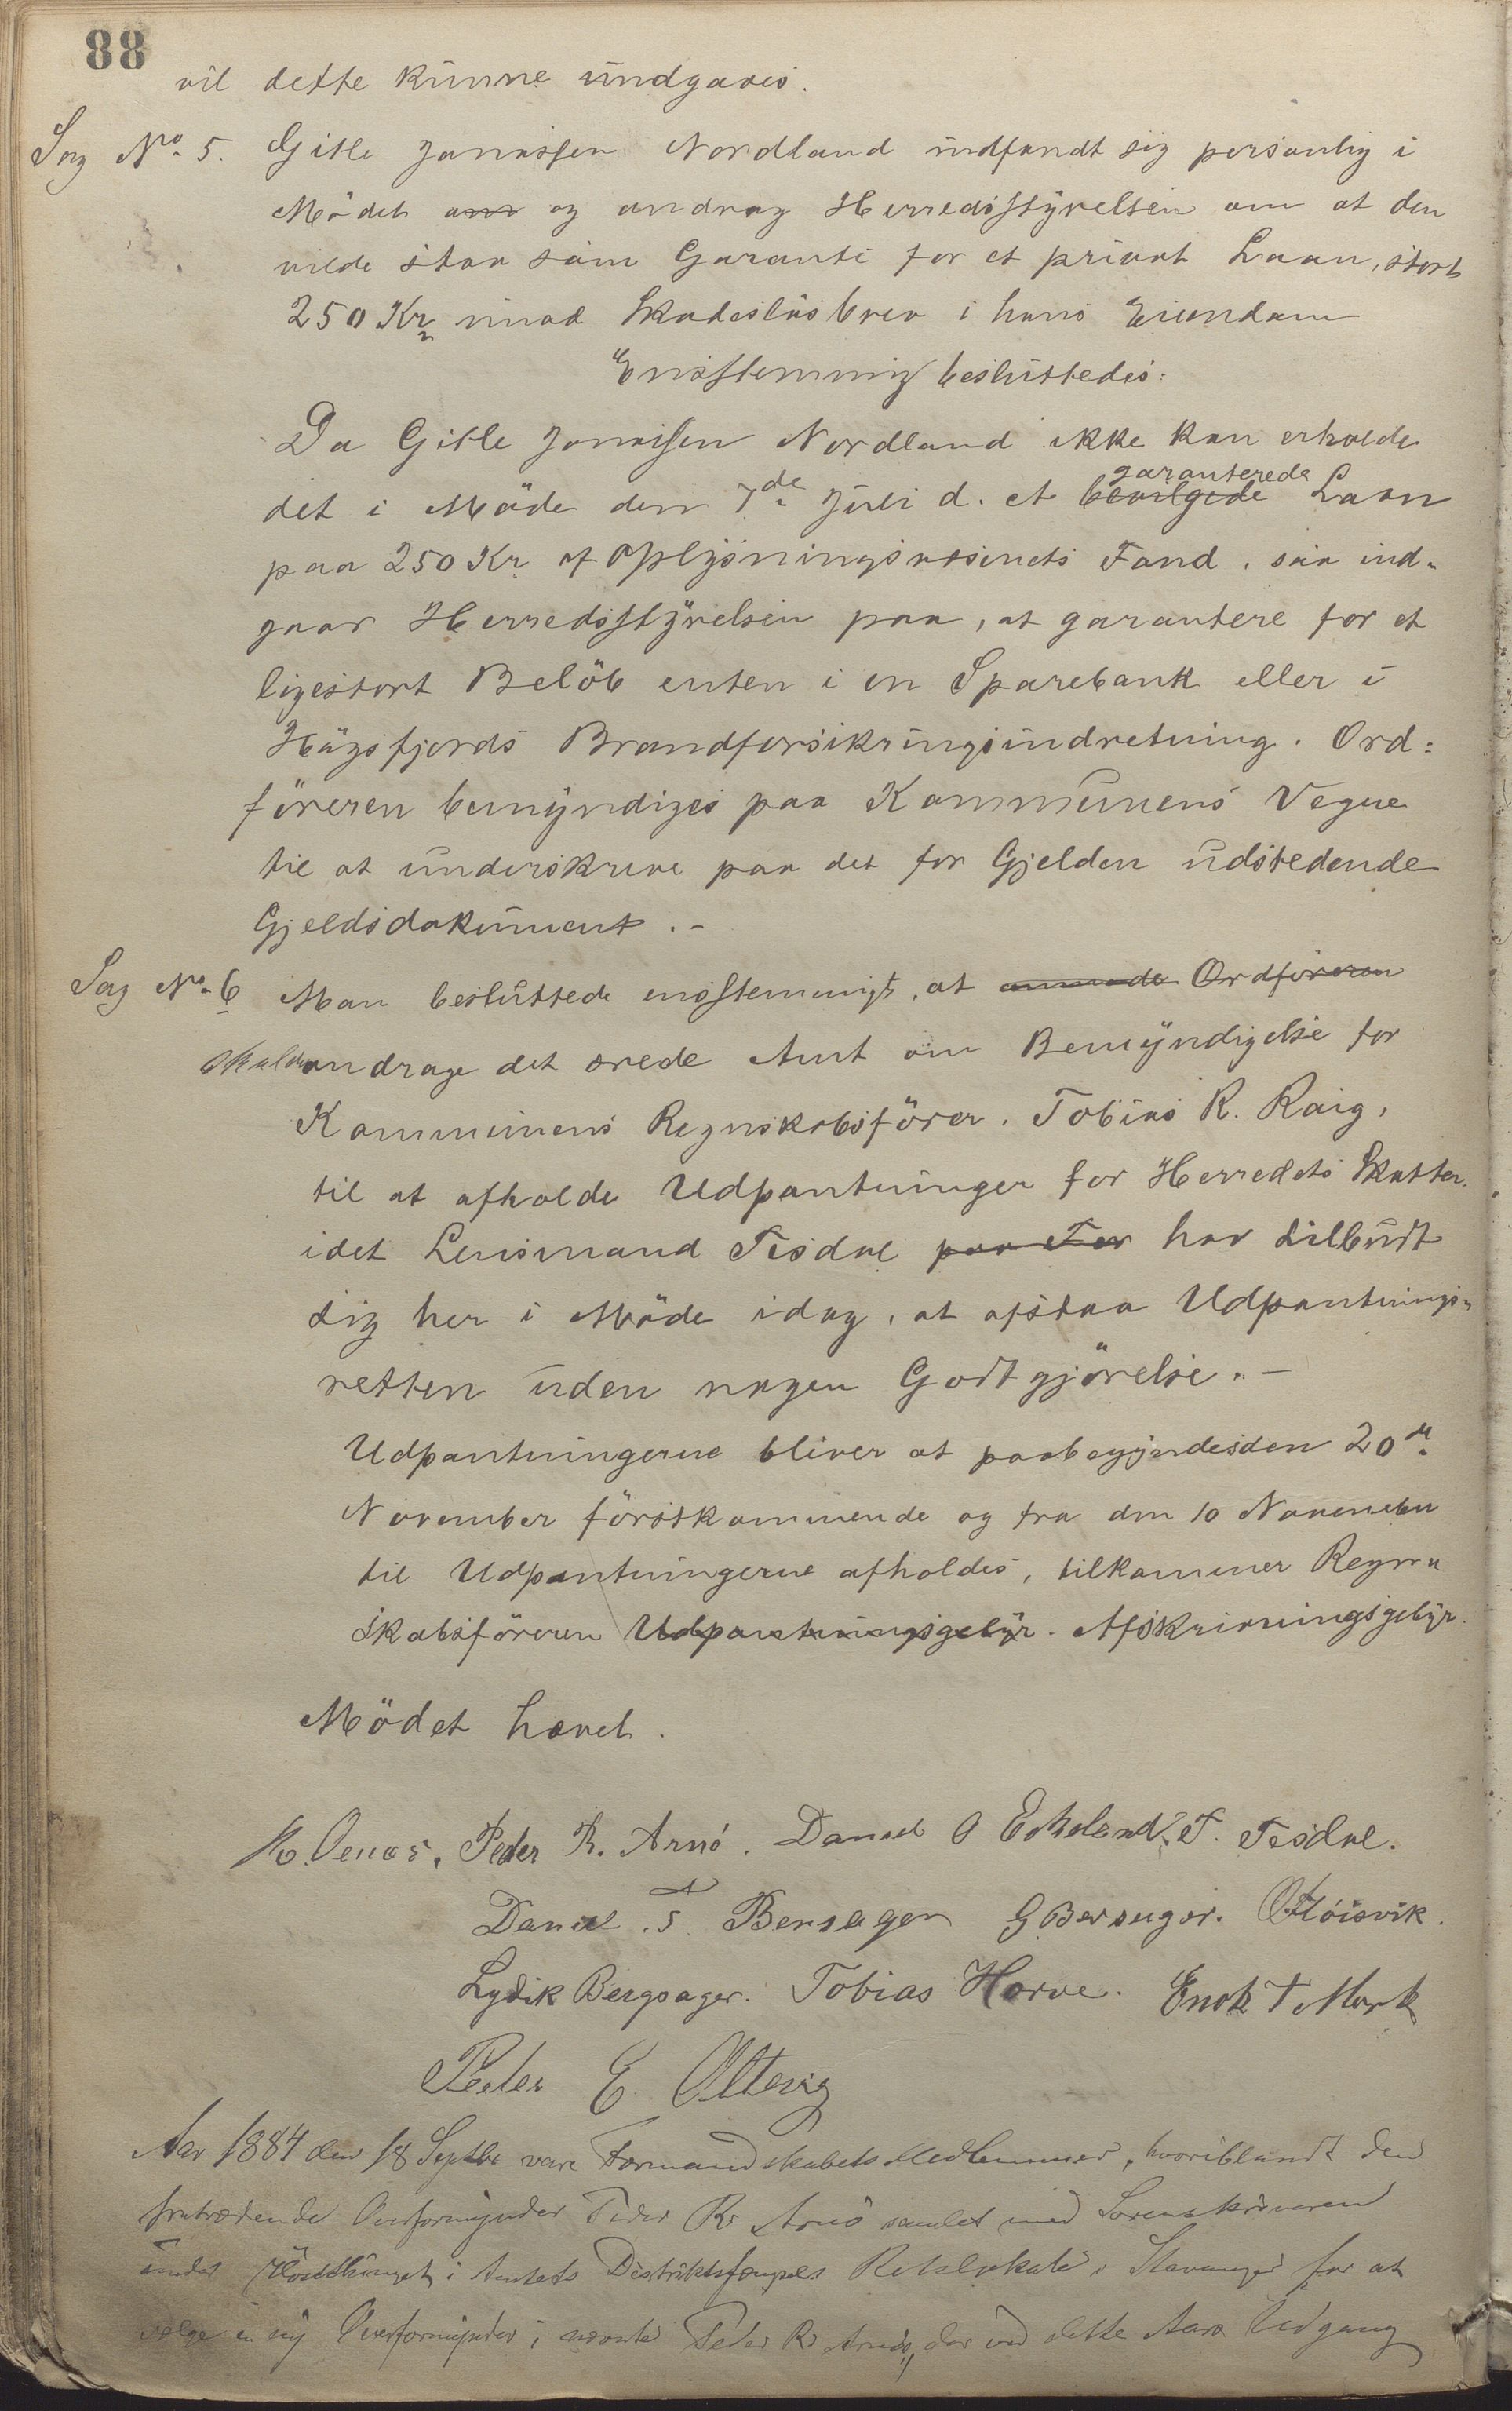 88
vil dette kunne undgaaes.
Sag No 5. Gitle Jonassen Nordland indfandt sig personlig i
Mödet om og androg Herredsstyrelsen om at den
vilde staa som Garanti for et privat Laan, stort
250 Kr mod Skadeslösbrev i hans Eiendom
Enstemmig besluttedes:
Da Gitle Jonassen Nordland ikke kan erholde
garanterede
det i Möde den 7de Juli d. et bevilgede Laan
paa 250 Kr af Oplysningsvæsenets Fond, saa ind-
gaar Herredsstyrelsen paa, at garantere for et
ligestort Belöb enten i en Sparebank eller i
Högsfjords Brandforsikringsindretning. Ord=
föreren bemyndiges paa Kommunens Vegne
til at underskrive paa det for Gjelden udstedende
Gjeldsdokument.-
Sag No 6 Man besluttede enstemmigt, at anmode Ordföreren
skulde andrage det ærede Amt om Bemyndigelse for
Kommunens Regnskabsförer, Tobias R. Raig,
til at afholde Udpantninger for Herredets Skatter,
idet Lensmand Tisdal paa For har tilbudt
sig her i Möde idag, at afstaa Udpantnings-
retten uden nogen Godtgjörelse.-
Udpantningerne bliver at paabegyndes den 20de
November förstkommende og fra den 10 November
til Udpantningerne afholdes, tilkommer Regn-
skabsföreren Udpantningsgebyr. Afskrivningsgebyr.
Mödet hævet.
R. Oenæs, Peder R. Arnö. Daniel O Eikeland. T. Tisdal.
Daniel T. Bersagen G Bersager. O Höisvik.
Lydik Bergsager. Tobias Horve. Enok T Mork
Peder E. Oltevig
Aar 1884 den 18 Septbr vare Formandskabets Medlemmer, hvoriblandt den
fratrædende Overformynder Peder Rs Arnö samlet med Sorenskriveren
under Hösttinget i Amtets Distriktsfængsels Retslokale i Stavanger for at
vælge en ny Overformynder, i nævnte Peder Rs Arnös, der ved dette Aars Udgang